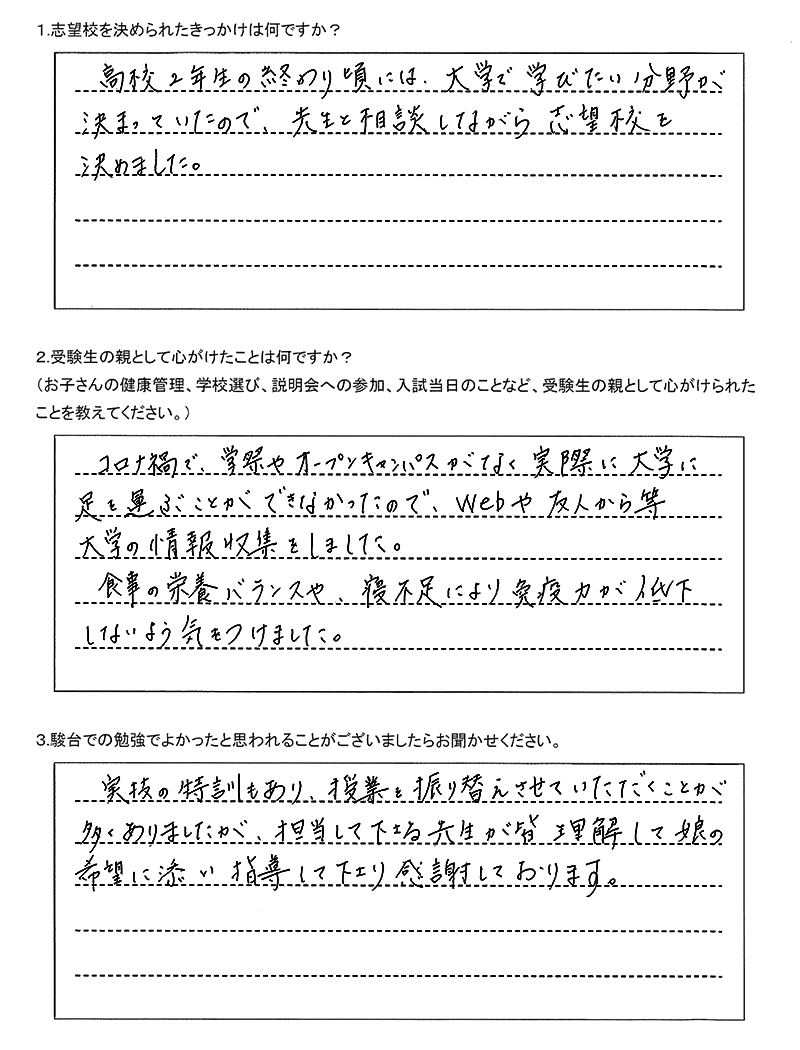 1.志望校を決められたきっかけは何ですか？
高校2年生の終わり頃には、大学で学びたい分野が
決まっていたので、先生と相談しながら志望校を
決めました。
2.受験生の親として心がけたことは何ですか？
（お子さんの健康管理、学校選び、説明会への参加、入試当日のことなど、受験生の親として心がけられた
ことを教えてください。）
コロナ禍で、学祭やオープンキャンパスがなく実際に大学に
足を運ぶことができなかったので、Webや友人から等
大学の情報収集をしました。
食事の栄養バランスや、寝不足により免疫力が低下
しないよう気をつけました。
3.駿台での勉強でよかったと思われることがございましたらお聞かせください。
実技の特訓もあり、授業を振り替えさせていただくことが
多くありましたが、担当して下さる先生が皆理解して娘の
希望に添い指導して下さり感謝しております。